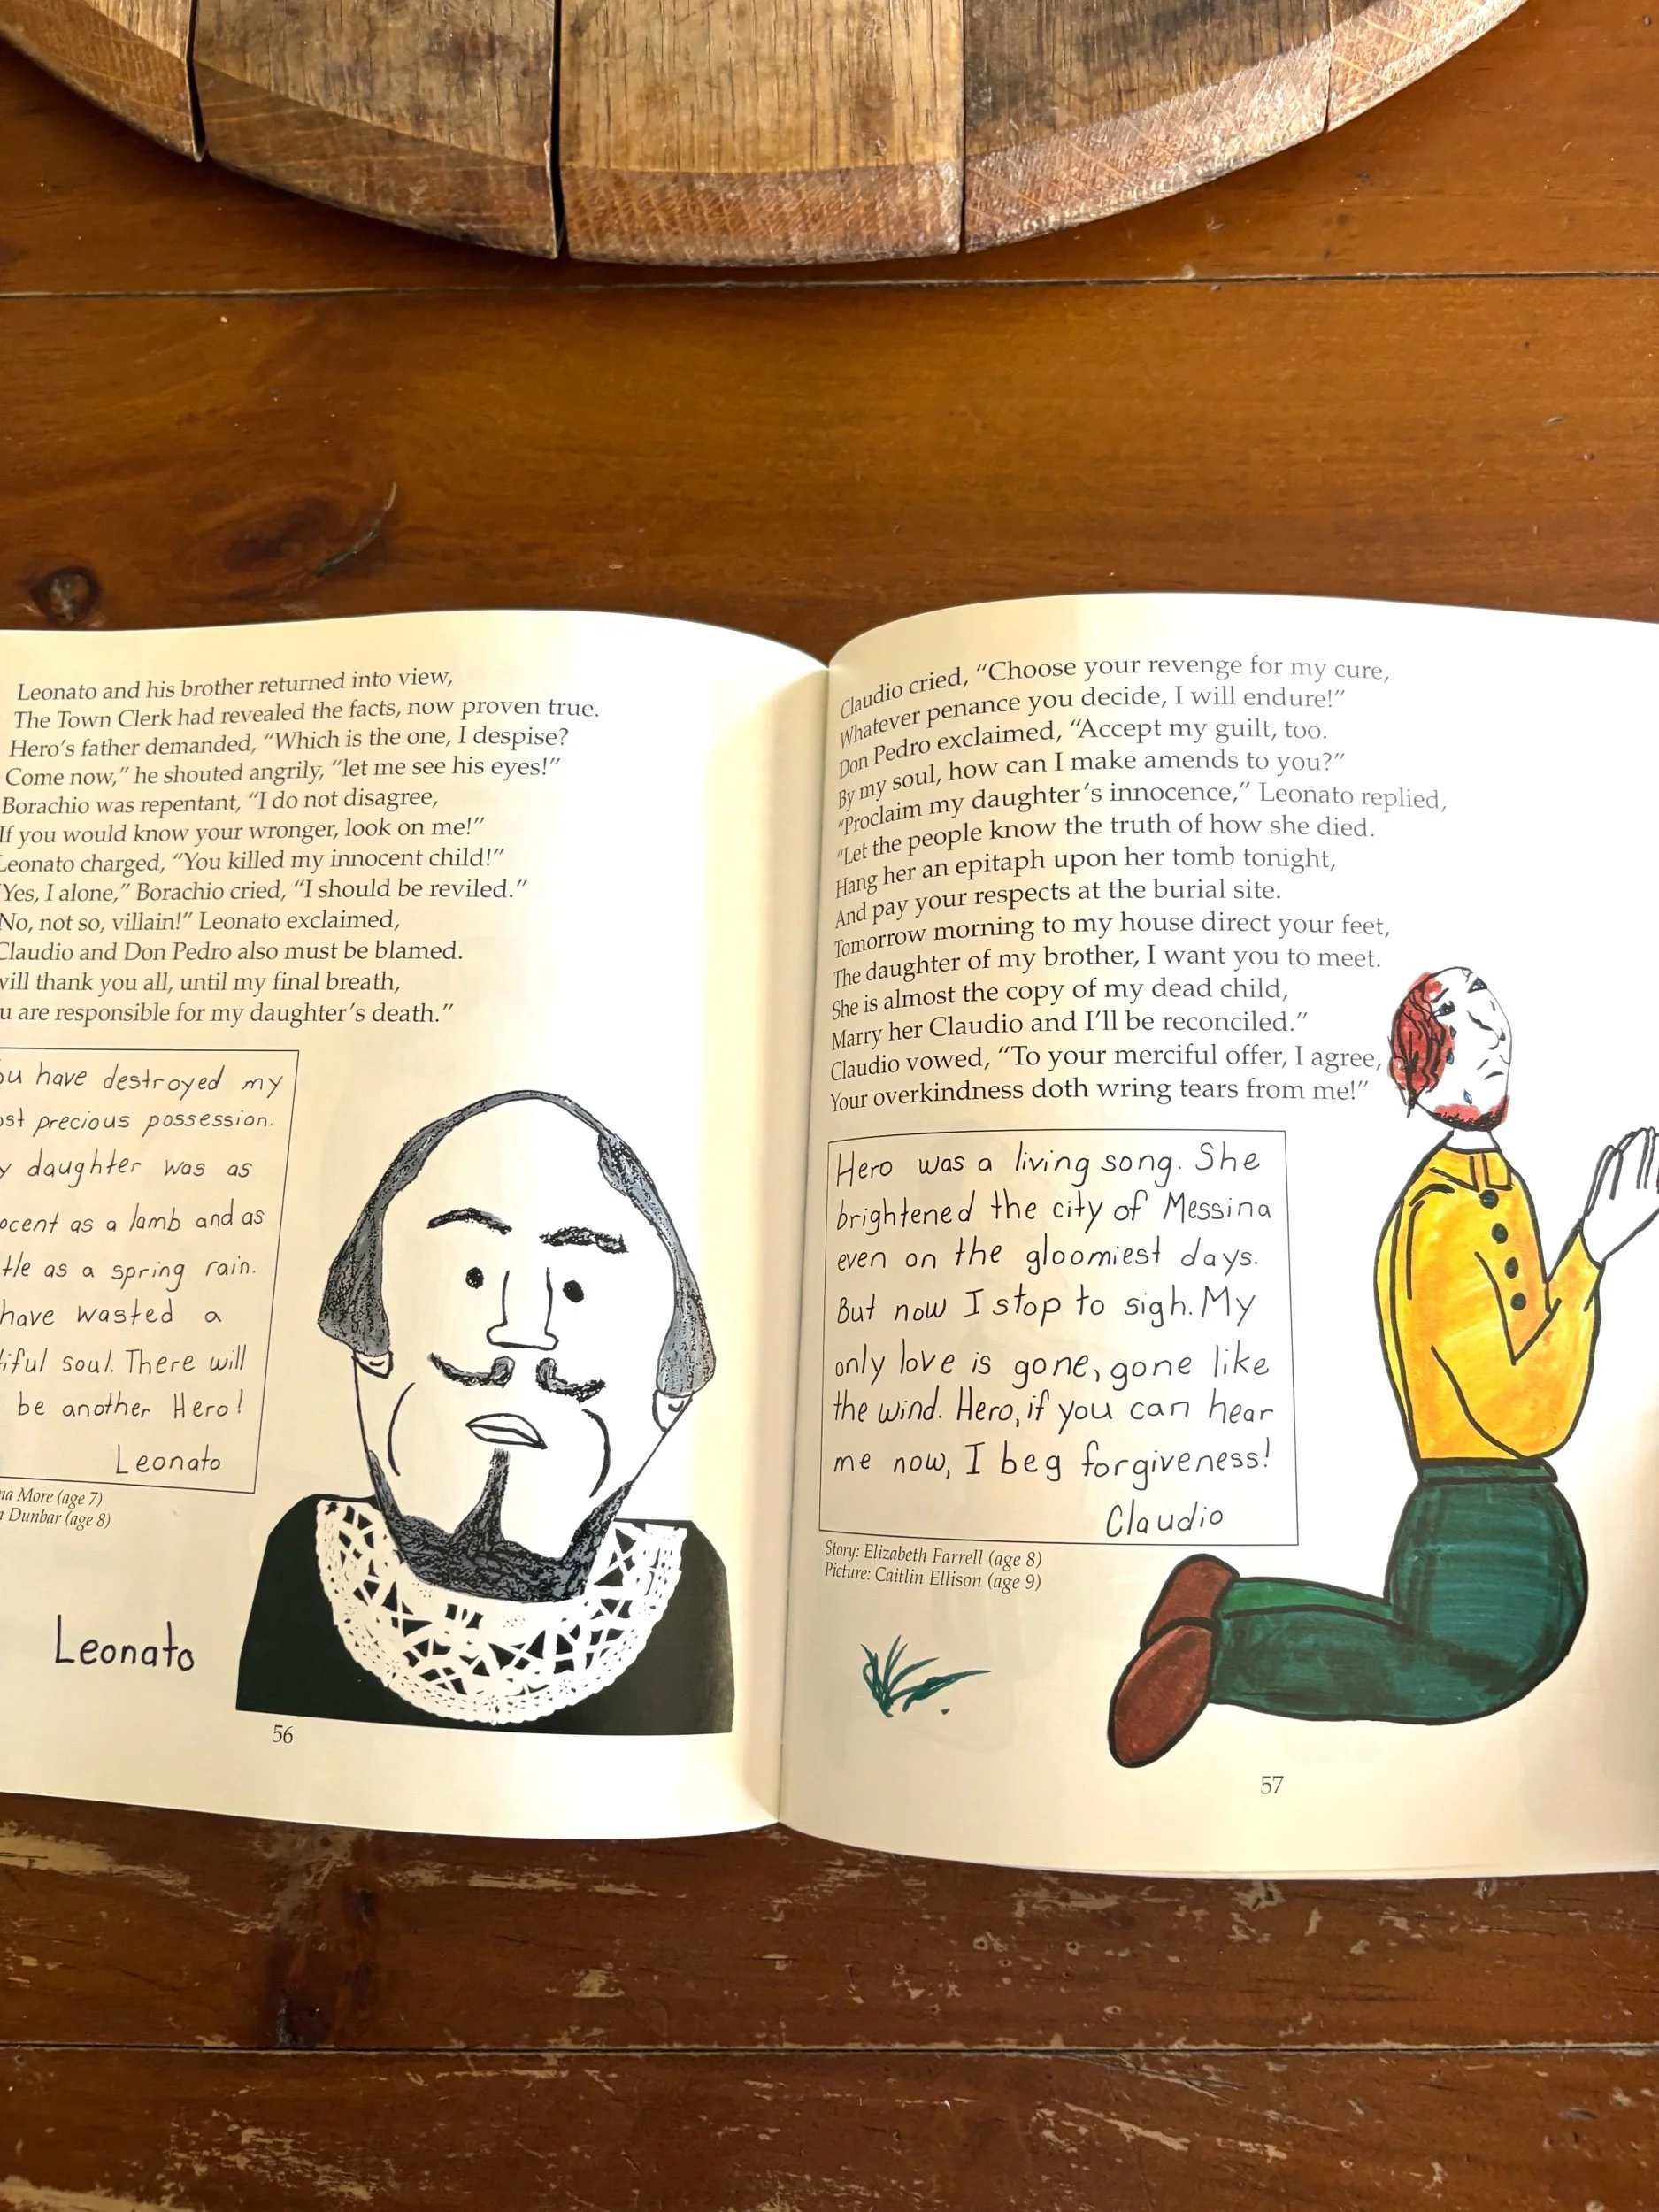 Leonato and his brother returned into view,
The Town Clerk had revealed the facts, now proven true.
Hero's father demanded, “Which is the one, I despise?
Come now,” he shouted angrily, “let me see his eyes!”
Borachio was repentant, “I do not disagree,
If you would know your wronger, look on me!”
Leonato charged, “You killed my innocent child!”
“Yes, I alone,” Borachio cried, “I should be reviled.”
“No, not so, villain!” Leonato exclaimed,
Claudio and Don Pedro also must be blamed.
will thank you all, until my final breath,
are responsible for my daughter's death.”
have destroyed my
precious possession.
daughter was as
as a lamb and as
as a spring rain.
have wasted a
soul. There will
be another Hero!
Leonato
More (age 7)
Dunbar (age 8)
Leonato
56
Claudio cried, “Choose your revenge for my cure,
Whatever penance you decide, I will endure!”
Don Pedro exclaimed, “Accept my guilt, too.
By my soul, how can I make amends to you?”
“Proclaim my daughter's innocence,” Leonato replied,
“Let the people know the truth of how she died.
Hang her an epitaph upon her tomb tonight,
And pay your respects at the burial site.
Tomorrow morning to my house direct your feet,
The daughter of my brother, I want you to meet.
She is almost the copy of my dead child,
Marry her Claudio and I'll be reconciled.”
Claudio vowed, “To your merciful offer, I agree,
Your overkindness doth wring tears from me!”
Hero was a living song. She
brightened the city of Messina
even on the gloomiest days.
But now I stop to sigh. My
only love is gone, gone like
the wind. Hero, if you can hear
me now, I beg forgiveness!
Claudio
Story: Elizabeth Farrell (age 8)
Picture: Caitlin Ellison (age 9)
57